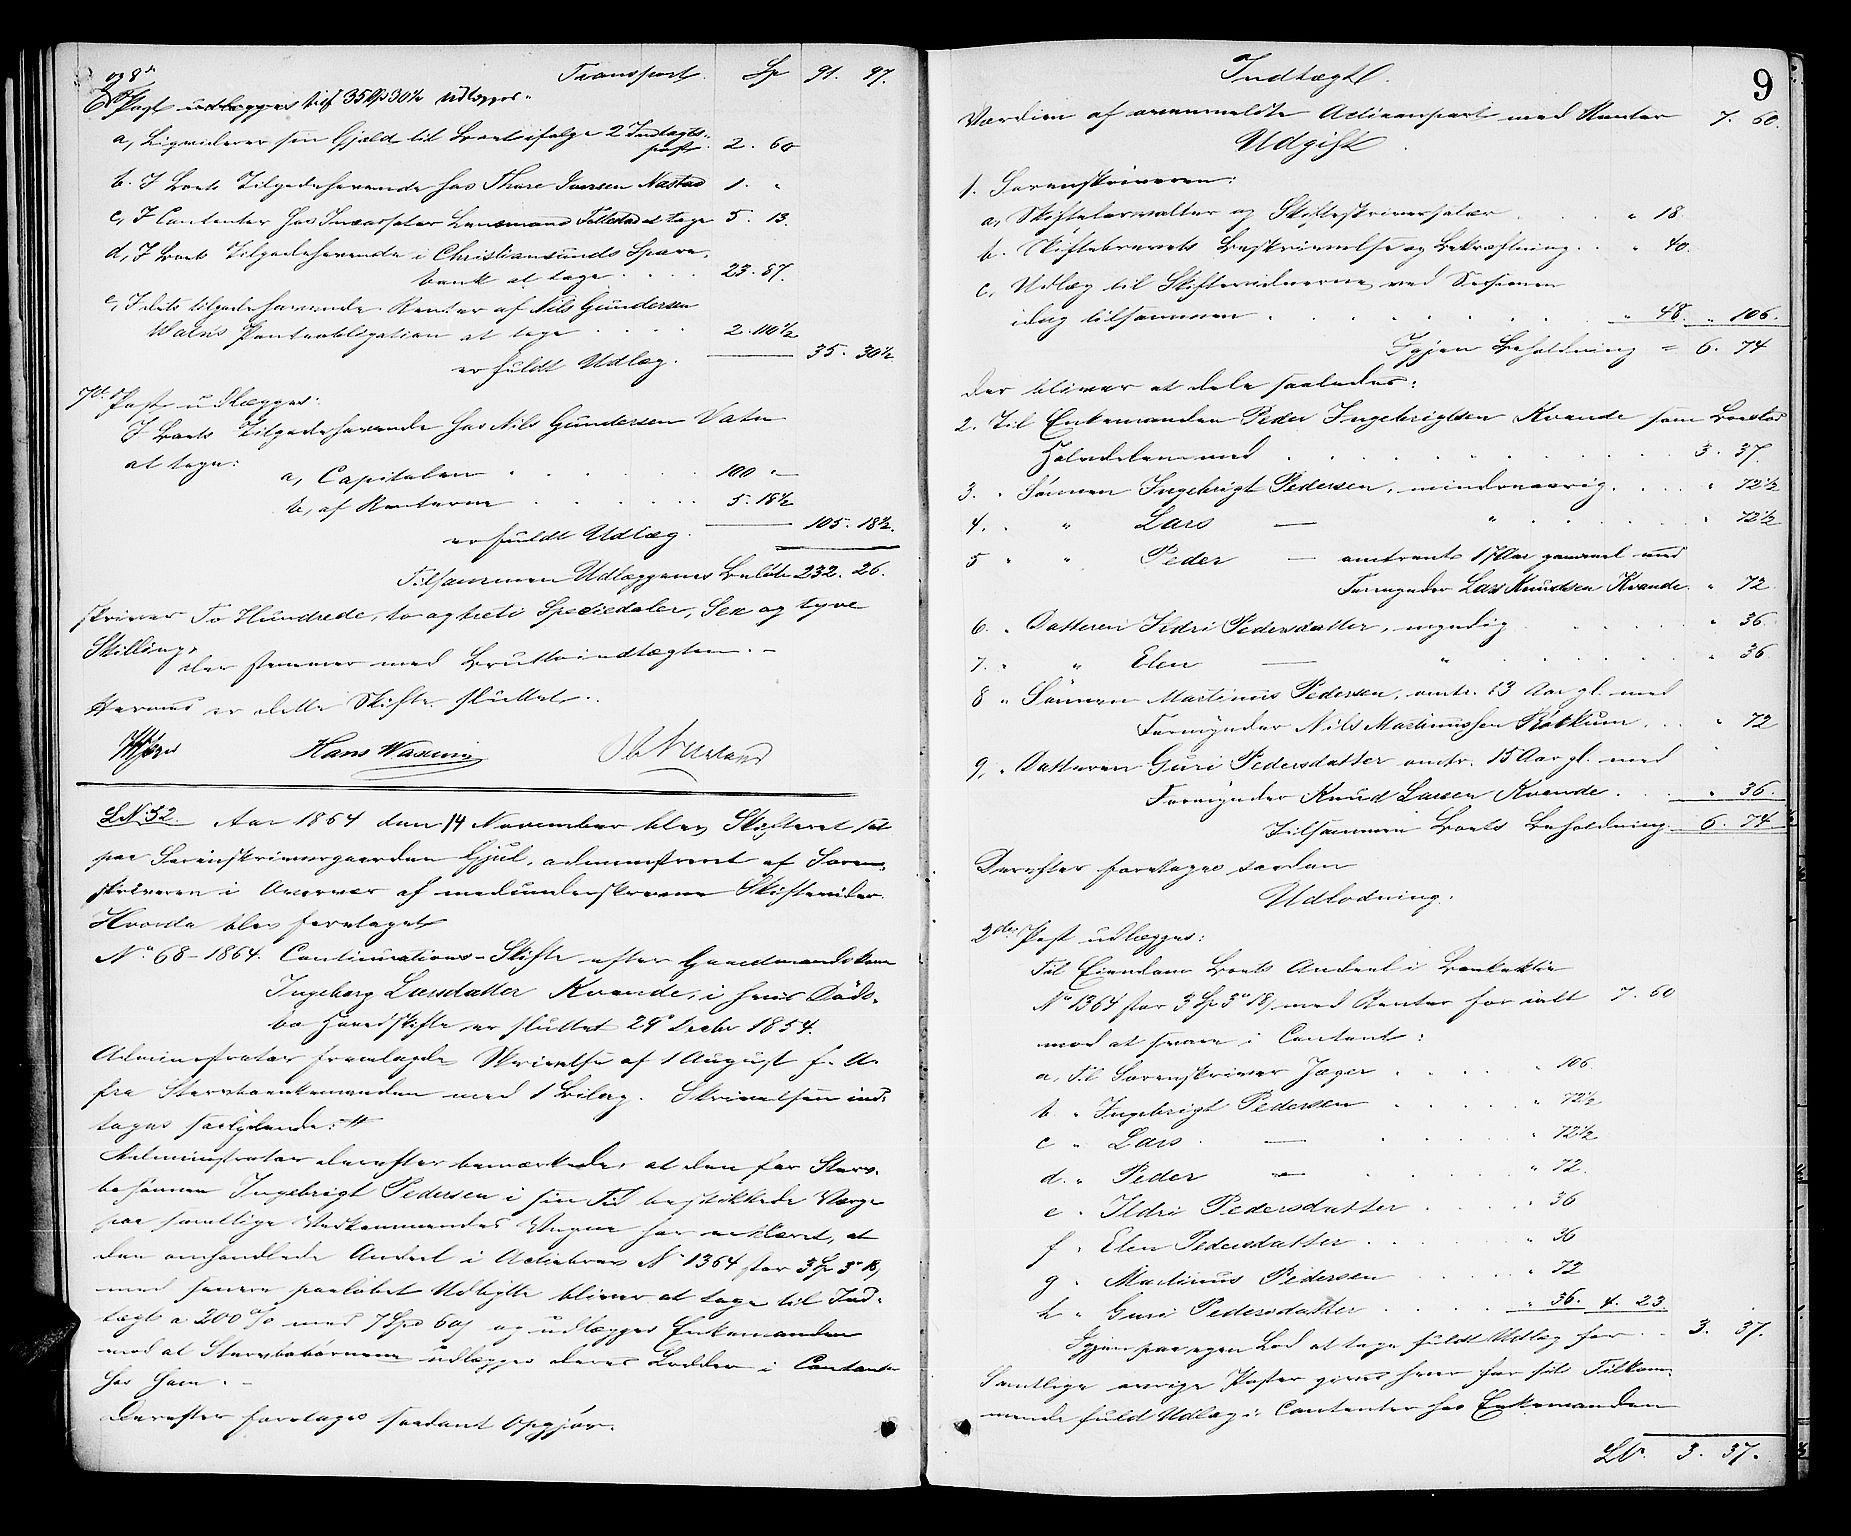 Transport. Sp 91. 97.
og 8de
6te Post udlægges til 35 Sp 30½ udlægges:
a, Liqviderer sin Gjæld til Boet ifølge 2 Indtægts-
post. 2. 60
b. I Boets Tilgodehavende hos Thore Iversen Nastad 1. "
c, I Contanter hos Incassator Lensmand Tollestad at tage 5. 13.
d, I Boets Tilgodehavende i Christiansunds Spare-
bank at tage . . . . 23. 87.
e, I dets tilgodehavende Renter af Nils Gundersen
Vatns Panteobligation at tage . . . . 2. 110½
er fuldt Udlæg. 35. 30½
7de Post udlægges:
I Boets Tilgodehavende hos Nils Gundersen Vatn
at tage:
a, Capitalen . . . . 100 "
b, af Renterne . . . . 5. 18½
er fuldt Udlæg. 105. 18½.
Tilsammen Udlæggenes Beløb 232. 26.
skriver To Hundrede, to og treti Speciedaler, Sex og tyve
Skilling,
der stemmer med Bruttoindtægten. -
Hermed er dette Skifte sluttet.
Hans Waxum
LN 32 Aar 1864 den 14 November blev Skifteret sat
paa Sorenskrivergaarden Gjul, administreret af Soren-
skriveren i Overvær af medunderskrevne Skiftevidner.
Hvorda blev foretaget
No 68-1864. Continuations-Skifte efter Gaardmandskone
Ingeborg Larsdatter Kvande, i hvis Døds-
bo Hovedskifte er sluttet 29 Decbr 1854.
Administrator fremlagde Skrivelse af 1 August f. A.
fra Stervboenkemanden med 1 Bilag. Skrivelsen ind-
tages saalydende:
Administrator derefter bemærkede, at den for Sterv-
bosønnen Ingebrigt Pedersen i sin Tid beskikkede Værge
paa samtlige Vedkommendes Vegne har erklæret, at
den omhandlede Andeel i Actiebrev No 1364 stor 3 Sp 3 18,
med senere paaløbet Udbytte bliver at tage til Ind-
tægt a 200 % med 7 Spd 60 og udlægges Enkemanden
mod at Stervbobørnene udlægges deres Lodder i Contanter
hos ham. -
Derefter foretages saadant Opgjør.
9
Indtægt.
Værdien af ovenmeldte Actieanpart med Renter 7. 60.
Udgift.
1. Sorenskriveren:
a, Skifteforvalter og Skifteskriversalær . . . " 18.
b. Skiftebrevets Beskrivelse og Bekræftning. . . " 40.
c, Udlæg til Skiftevidnerne ved Sessionen
idag tilsammen . . . . " 48. " 106.
Igjen Beholdning = 6. 74
der bliver at dele saaledes:
2. Til Enkemanden Peder Ingebrigtsen Kvande som Boeslod
Halvdelen med . . . . 3. 37.
3. " Sønnen Ingebrigt Pedersen, mindreaarig . . . " 72½
4. " " Lars — " . . . " 72½
5 " " Peder — omtrent 17 Aar gammel med
Formynder Lars Knudsen Kvande. " 72
6. " Datteren Ildri Pedersdatter, myndig . . . " 36.
7. " " Elen — " . . . " 36
8 " Sønnen Martinus Pedersen, omtr. 13 Aar gl. med
Formynder Nils Martinussen Røkkum. . . " 72
9, " Datteren Guri Pedersdatter omtr. 15 Aar gl. med
Formynder Knud Larsen Kvande. . . " 36.
Tilsammen Boets Beholdning. 6. 74
Derefter foretages saadan
Udlodning.
2den Post udlægges:
Til Eiendom Boets Andeel i Bankaktie
No 1364 stor 3 Sp 3 18, med Renter for ialt 7. 60
mod at svare i Contant:
a, Til Sorenskriver Jæger . . . " 106
b. " Ingebrigt Pedersen . . . " 72½
c " Lars — . . . " 72½
d. " Peder — . . . " 72.
e. " Ildri Pedersdatter . . . " 36
f " Elen Pedersdatter . . . " 36
g " Martinus Pedersen . . . " 72
h " Guri Pedersdatter . . . " 36. 4. 23
Igjen paa egen Lod at tage fuldt Udlæg for . . 3. 37.
Samtlige øvrige Poster gives hver for sit Tilkom-
mende fuld Udlæg i Contanter hos Enkemanden
Lat. 3. 37.